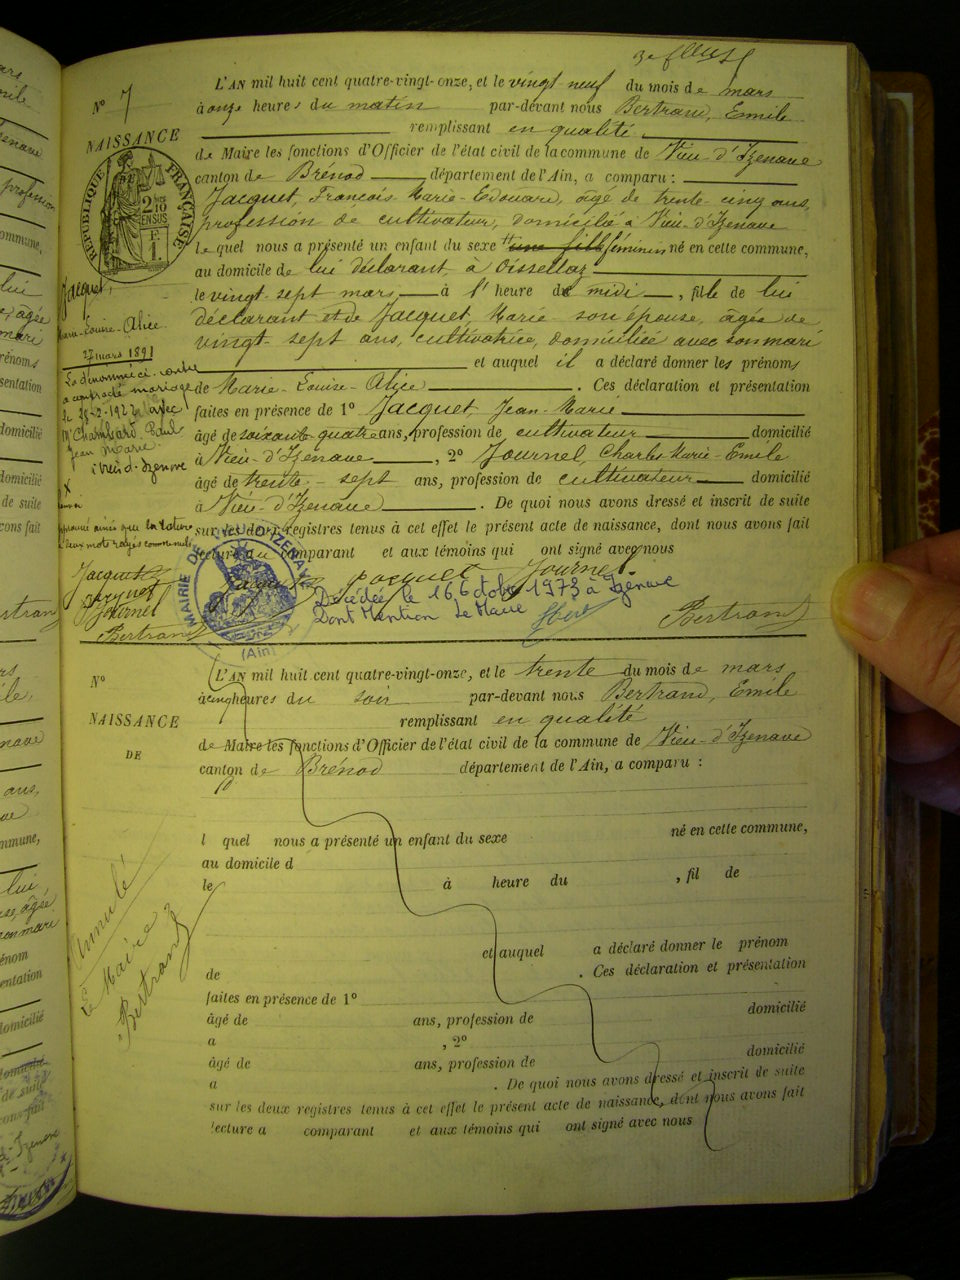 3e feuille
N° 7
NAISSANCE
RÉPUBLIQUE FRANÇAISE
2/10 EN SUS
F 1.
L'AN mil huit cent quatre-vingt-onze, et le vingt neuf du mois de mars
à onze heures du matin par-devant nous Bertrand, Emile
remplissant en qualité
de Maire les fonctions d'Officier de l'état civil de la commune de Vieu-d'Izenave
canton de Brénod département de l'Ain, a comparu :
Jacquet, François-Marie-Edouard, âgé de trente-cinq ans,
profession de cultivateur, domicilié à Vieu-d'Izenave
lequel nous a présenté un enfant du sexe une fille féminin né en cette commune,
au domicile de lui déclarant à Oissellaz
le vingt-sept mars à l'heure de midi, fille de lui
déclarant et de Jacquet, Marie son épouse, âgée de
vingt-sept ans, cultivatrice, domiciliée avec son mari
et auquel il a déclaré donner les prénoms
de Marie-Louise-Alice. Ces déclaration et présentation
faites en présence de 1° Jacquet, Jean-Marie
âgé de soixante-quatre ans, profession de cultivateur domicilié
à Vieu-d'Izenave, 2° Journel, Charles-Marie-Emile
âgé de trente-sept ans, profession de cultivateur domicilié
à Vieu-d'Izenave. De quoi nous avons dressé et inscrit de suite
sur les deux registres tenus à cet effet le présent acte de naissance, dont nous avons fait
lecture au comparant et aux témoins qui ont signé avec nous
Jacquet Jacquet Journel
Décédée le 16 Octobre 1973 à Izenave
Dont Mention Le Maire
Bertrand
Jacquet,
Marie-Louise-Alice
27 mars 1891
La dénommée ci-contre
a contracté mariage
le 25-2-1922 avec
Mr Chambard Paul
Jean Marie
à Vieu d'Izenave
approuvé ainsi que la rature
de deux mots rayés comme nuls
Jacquet
Jacquet
Journel
Bertrand
MAIRIE DE VIEU-D'IZENAVE
(Ain)
N°
NAISSANCE
DE
L'AN mil huit cent quatre-vingt-onze, et le trente du mois de mars
à cinq heures du soir par-devant nous Bertrand, Emile
remplissant en qualité
de Maire les fonctions d'Officier de l'état civil de la commune de Vieu-d'Izenave
canton de Brénod département de l'Ain, a comparu :
l quel nous a présenté un enfant du sexe né en cette commune,
au domicile d
le à heure du , fil de
et auquel a déclaré donner le prénom
de . Ces déclaration et présentation
faites en présence de 1°
âgé de ans, profession de domicilié
a , 2°
âgé de ans, profession de domicilié
a . De quoi nous avons dressé et inscrit de suite
sur les deux registres tenus à cet effet le présent acte de naissance, dont nous avons fait
lecture a comparant et aux témoins qui ont signé avec nous
Annulé
Le Maire
Bertrand